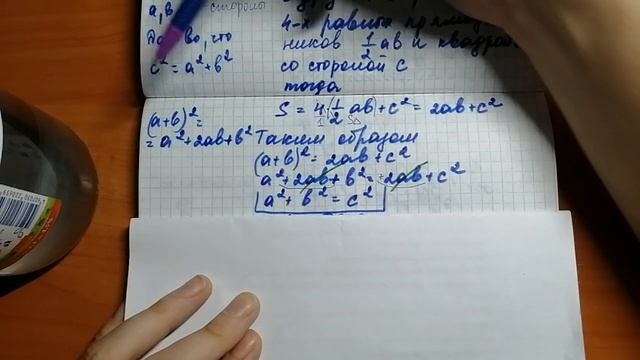 a, b - стороны
Док-во, что
c² = a² + b²
(a+b)² =
= a² + 2ab + b²
4-х равных прямоуг
ников 1/2 ab и квадрат
со стороной c
тогда
S = 4(1/2 ab) + c² = 2ab + c²
Таким образом
(a+b)² = 2ab + c²
a² + 2ab + b² = 2ab + c²
a² + b² = c²